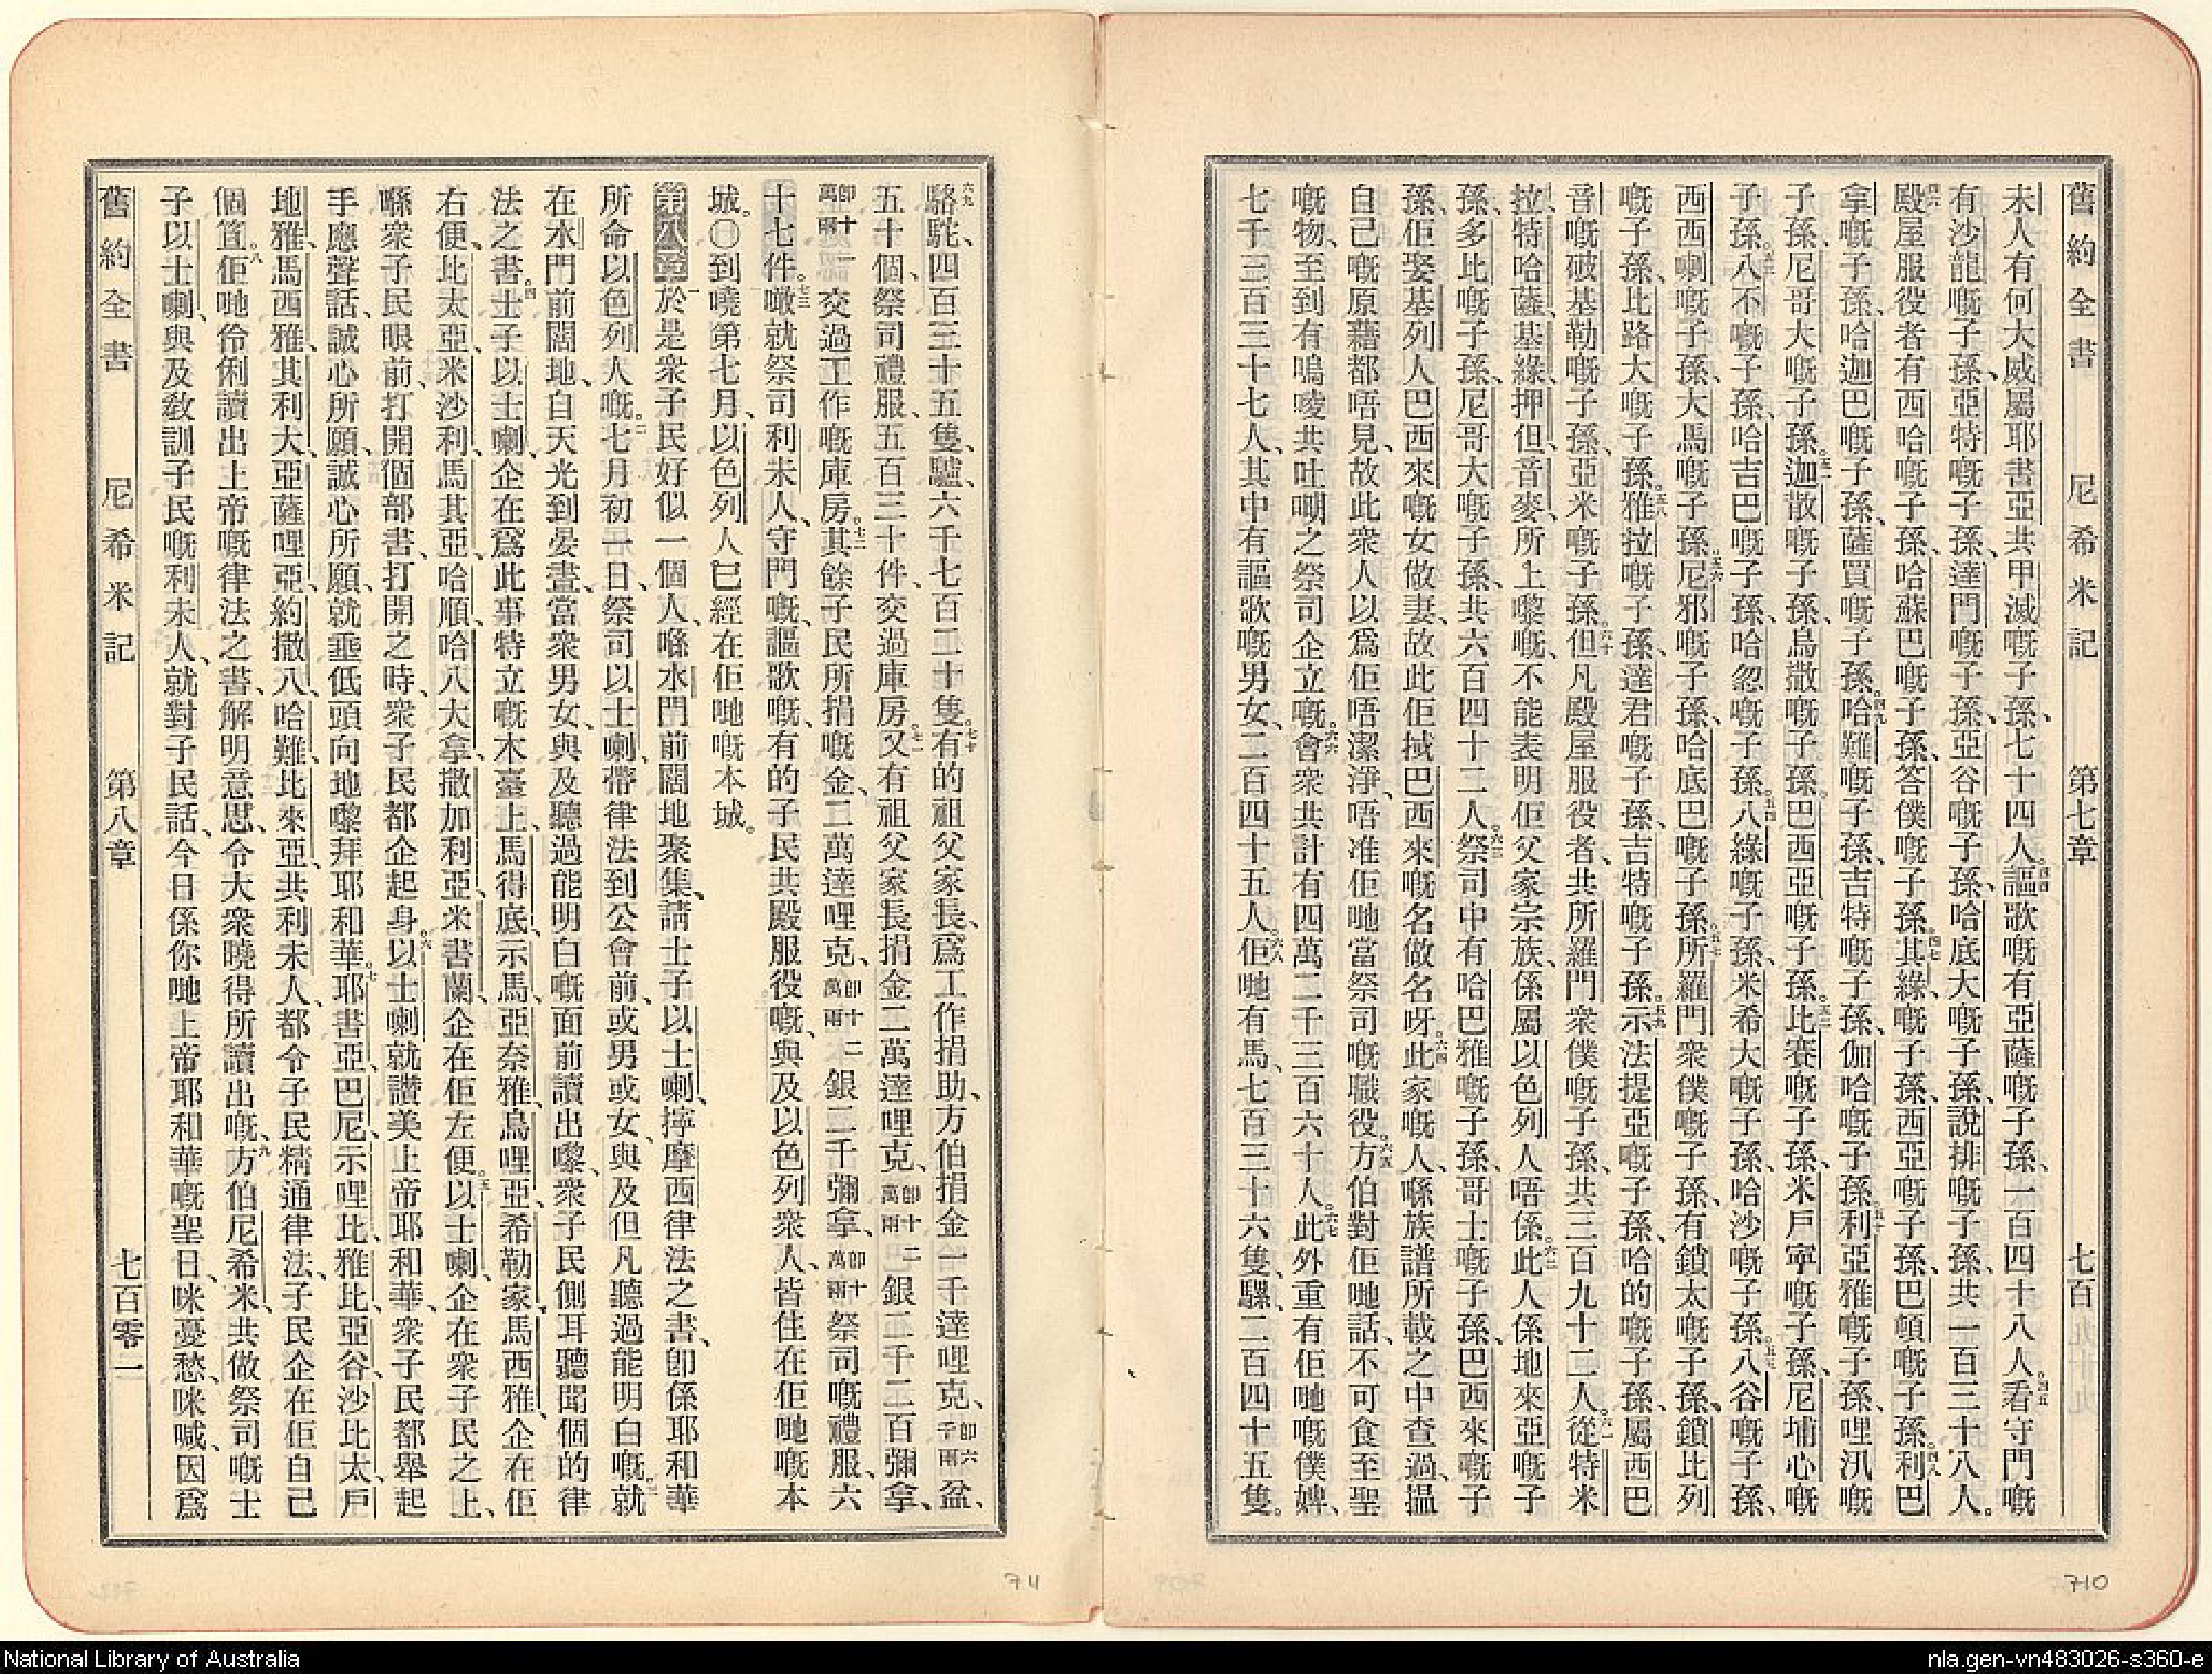 舊約全書 尼希米記 第七章 七百
未人有何大威屬耶書亞共甲滅嘅子孫、七十四人。四四謳歌嘅有亞薩嘅子孫、一百四十八人。四五看守門嘅
有沙龍嘅子孫、亞特嘅子孫、達門嘅子孫、亞谷嘅子孫、哈底大嘅子孫、說排嘅子孫、共一百三十八人。
四六殿屋服役者有西哈嘅子孫、哈蘇巴嘅子孫、答僕嘅子孫。四七其綠嘅子孫、西亞嘅子孫、巴頓嘅子孫。四八利巴
拿嘅子孫、哈迦巴嘅子孫、薩買嘅子孫。四九哈難嘅子孫、吉特嘅子孫、伽哈嘅子孫。五十利亞雅嘅子孫、哩汛嘅
子孫、尼哥大嘅子孫。五一迦散嘅子孫、烏撒嘅子孫。巴西亞嘅子孫。五二比賽嘅子孫、米戶寧嘅子孫、尼埔心嘅
子孫。五三八不嘅子孫、哈吉巴嘅子孫、哈忽嘅子孫。五四八綠嘅子孫、米希大嘅子孫、哈沙嘅子孫。五五八谷嘅子孫、
西西喇嘅子孫、大馬嘅子孫。五六尼邪嘅子孫、哈底巴嘅子孫。五七所羅門衆僕嘅子孫、有鎖太嘅子孫、鎖比列
嘅子孫、比路大嘅子孫。五八雅拉嘅子孫、達君嘅子孫、吉特嘅子孫。五九示法提亞嘅子孫、哈的嘅子孫、屬西巴
音嘅破基勒嘅子孫、亞米嘅子孫。六十但凡殿屋服役者、共所羅門衆僕嘅子孫、共三百九十二人。六一從特米
拉、特哈薩、基綠、押但、音麥、所上嚟嘅、不能表明佢父家宗族、係屬以色列人唔係。六二此人係地來亞嘅子
孫、多比嘅子孫、尼哥大嘅子孫、共六百四十二人。六三祭司中有哈巴雅嘅子孫、哥士嘅子孫、巴西來嘅子
孫、佢娶基列人巴西來嘅女做妻、故此佢拭巴西來嘅名做名呀。六四此家嘅人、喺族譜所載之中查過、搵
自己嘅原藉都唔見、故此衆人以爲佢唔潔淨、唔准佢哋當祭司嘅職役。六五方伯對佢哋話、不可食至聖
嘅物、至到有嗚㖫共吐㗅之祭司企立嘅。六六會衆共計有四萬二千三百六十人。六七此外重有佢哋嘅僕婢、
七千三百三十七人、其中有謳歌嘅男女、二百四十五人。六八佢哋有馬、七百三十六隻、騾、二百四十五隻。
710
六九駱駝、四百三十五隻、驢、六千七百二十隻。七十有的祖父家長、爲工作捐助、方伯捐金一千達哩克、卽六千兩盆、
五十個、祭司禮服、五百三十件、交過庫房。七一又有祖父家長捐金二萬達哩克、卽十二萬兩銀二千二百彌拿、
卽十一萬兩交過工作嘅庫房。七二其餘子民所捐嘅金、二萬達哩克、卽十二萬兩銀二千彌拿、卽十萬兩祭司嘅禮服、六
十七件。七三噉就祭司利未人、守門嘅、謳歌嘅、有的子民共殿服役嘅、與及以色列衆人、皆住在佢哋嘅本
城。○到曉第七月、以色列人已經在佢哋嘅本城。
第八章 一於是衆子民好似一個人、喺水門前闊地聚集、請士子以士喇、擰摩西律法之書、卽係耶和華
所命以色列人嘅。二七月初一日、祭司以士喇、帶律法到公會前、或男或女、與及但凡聽過能明白嘅。三就
在水門前闊地、自天光到晏晝、當衆男女、與及聽過能明白嘅面前讀出嚟、衆子民側耳聽聞個的律
法之書。四士子以士喇、企在爲此事特立嘅木臺上、馬得底、示馬、亞奈雅、烏哩亞、希勒家、馬西雅、企在佢
右便、比太亞、米沙利、馬其亞、哈順、哈八大拿、撒加利亞、米書蘭、企在佢左便。五以士喇、企在衆子民之上、
喺衆子民眼前、打開個部書、打開之時、衆子民都企起身。六以士喇就讚美上帝耶和華、衆子民都舉起
手應聲話、誠心所願、誠心所願、就垂低頭向地嚟拜耶和華。七耶書亞、巴尼、示哩比、雅比、亞谷、沙比太、戶
地雅、馬西雅、其利大、亞薩哩亞、約撒八、哈難、比來亞、共利未人、都令子民精通律法、子民企在佢自己
個笪。八佢哋伶俐讀出上帝嘅律法之書、解明意思、令大衆曉得所讀出嘅、九方伯尼希米、共做祭司嘅士
子以士喇、與及敎訓子民嘅利未人、就對子民話、今日係你哋上帝耶和華嘅聖日、咪憂愁、咪喊、因爲
舊約全書 尼希米記 第八章 七百零一
711
National Library of Australia
nla.gen-vn483026-s360-e